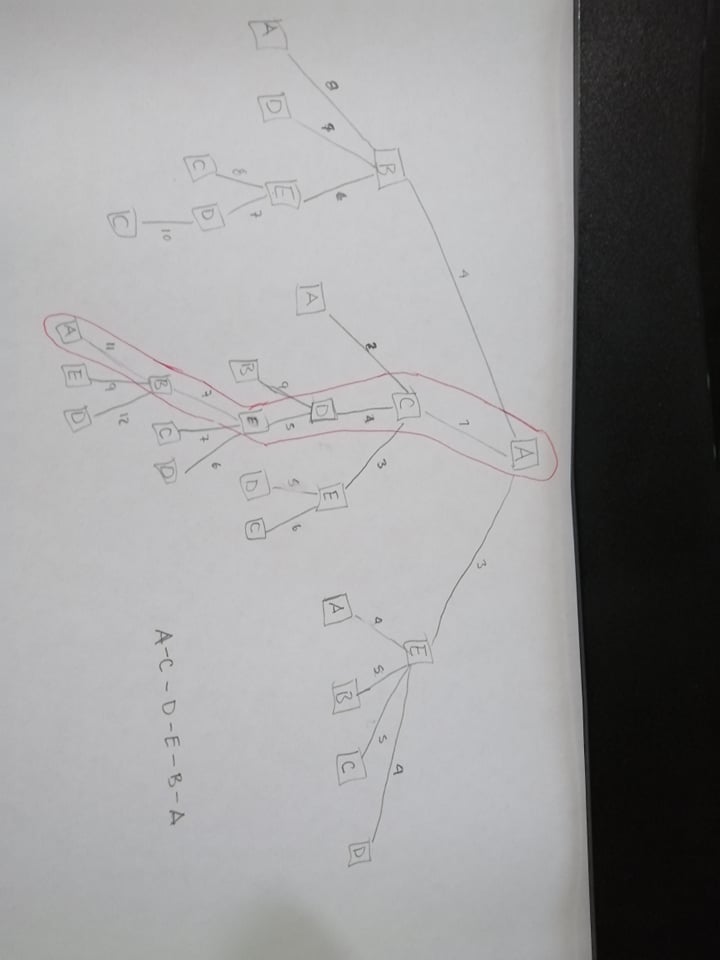 A
4 1 3
B C E
8 9 6 2 4 3 4 5 5 4
A D E A D E A B C D
8 7 9 5 5 6
C D B E D C
10 7 7 6
C B C D
11 9 12
A E D
A-C-D-E-B-A